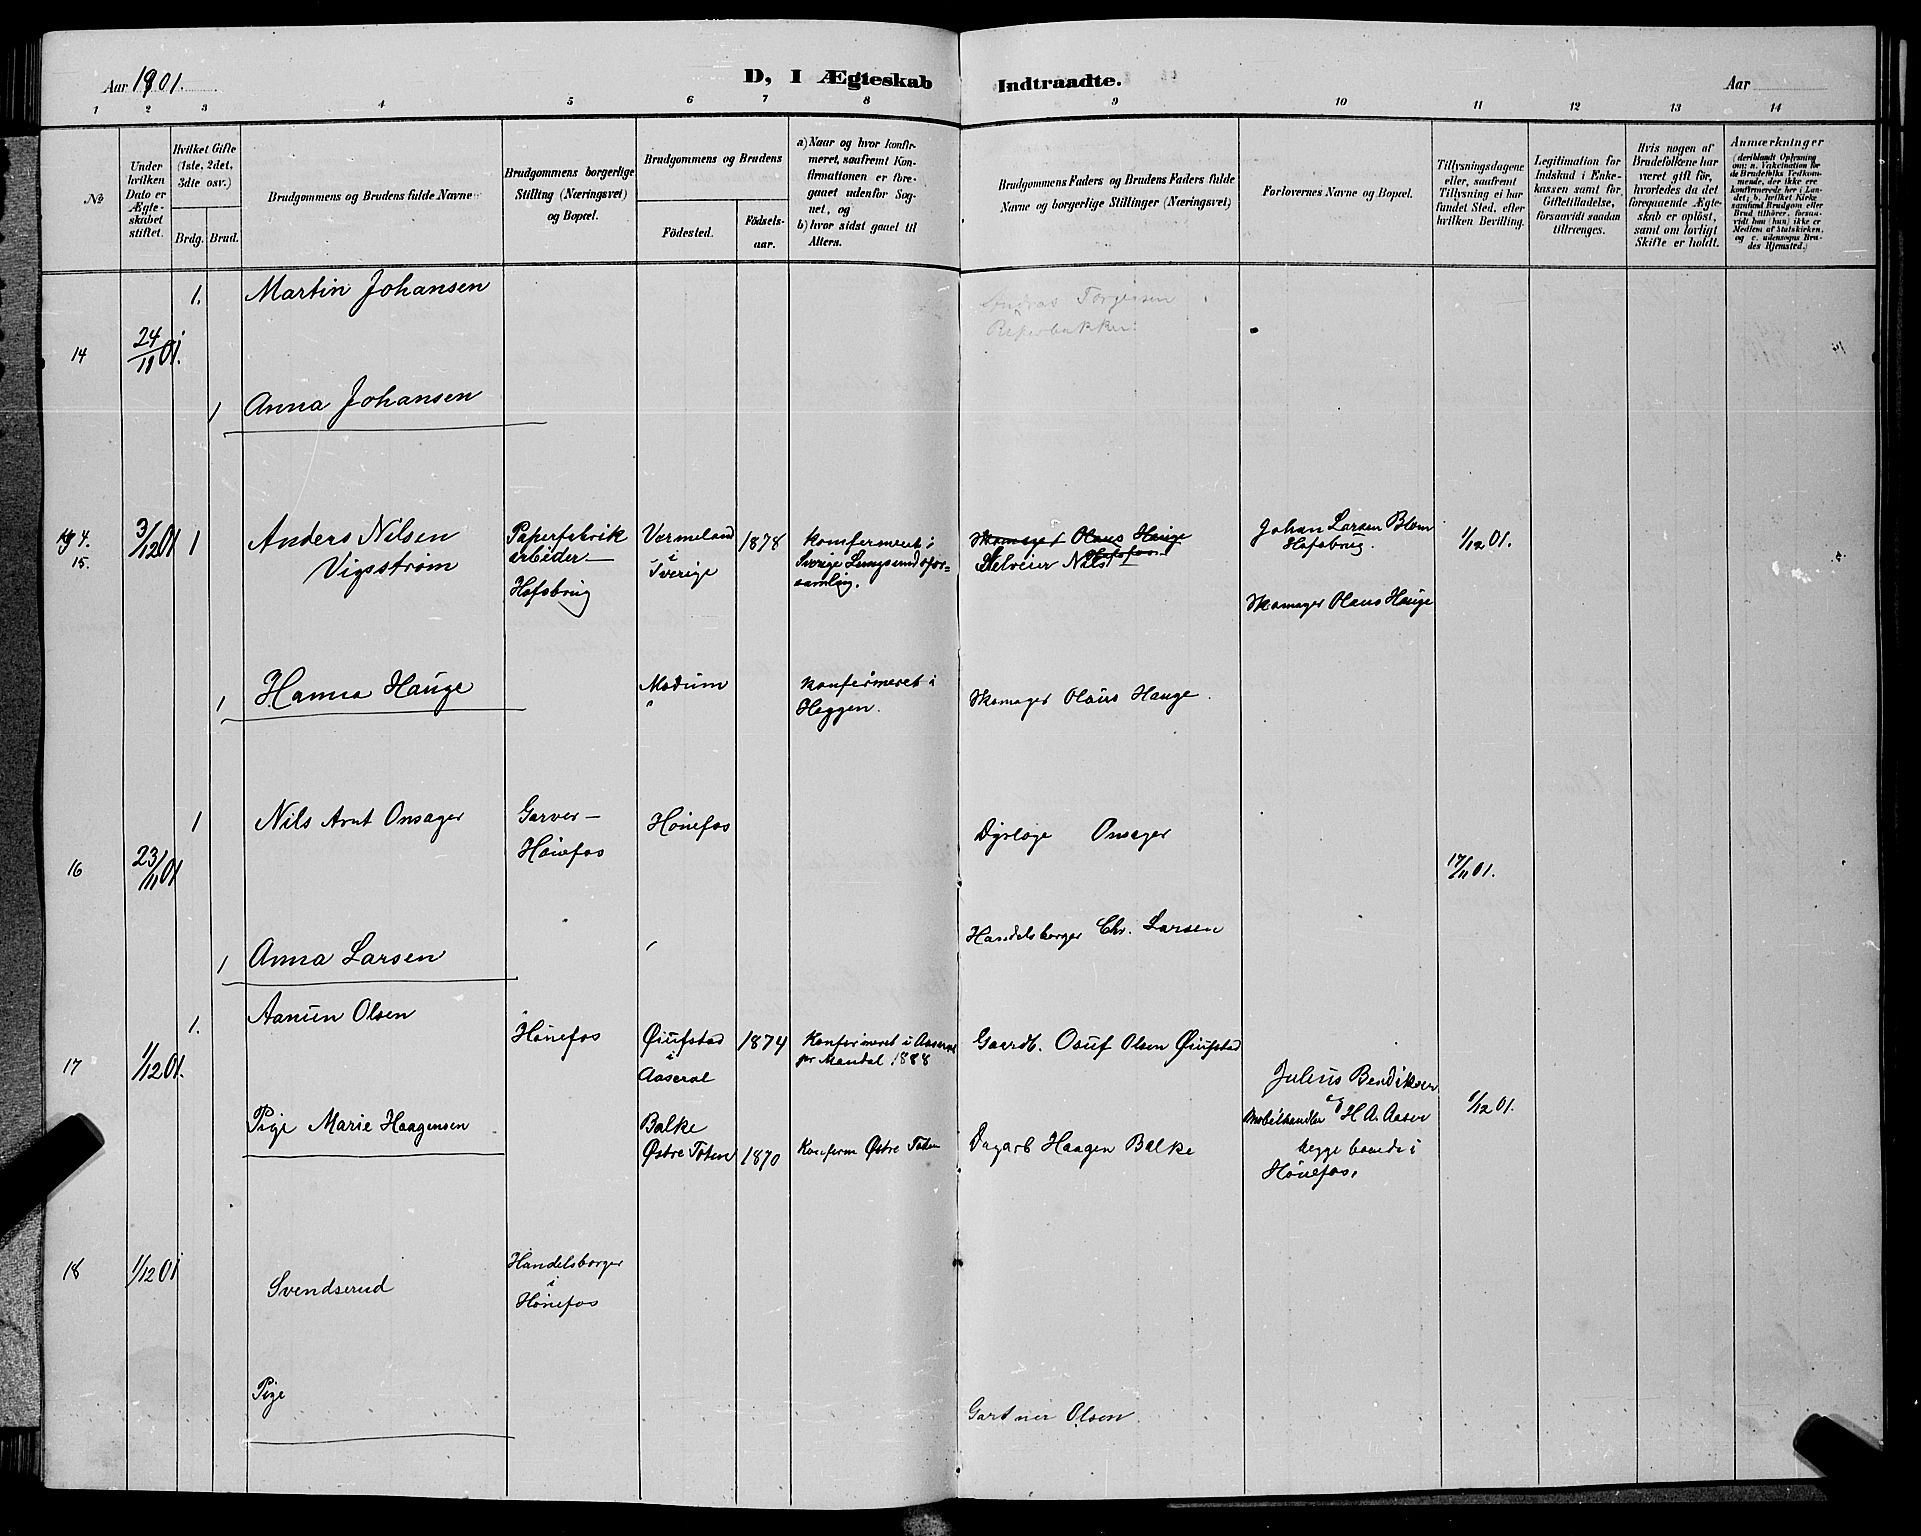 Aar 1901.
D, I Ægteskab Indtraadte.
Aar
1 2 3 4 5 6 7 8 9 10 11 12 13 14
No
Under hvilken Dato er Ægteskabet stiftet.
Hvilket Gifte (1ste, 2det, 3die osv.)
Brdg. Brud.
Brudgommens og Brudens fulde Navne
Brudgommens borgerlige Stilling (Næringsvei) og Bopæl.
Brudgommens og Brudens
Födested. Födselsaar.
a) Naar og hvor konfirmeret, saafremt Konfirmationen er foregaaet udenfor Sognet, og
b) hvor sidst gaaet til Alters.
Brudgommens Faders og Brudens Faders fulde Navne og borgerlige Stillinger (Næringsvei)
Forlovernes Navne og Bopæl.
Tillysningsdagene eller, saafremt Tillysning ei har fundet Sted, efter hvilken Bevilling.
Legitimation for Indskud i Enkekassen samt for Giftetilladelse, forsaavidt saadan tiltrænges.
Hvis nogen af Brudefolkene har været gift før, hvorledes da det foregaaende Ægteskab er oplöst, samt om lovligt Skifte er holdt.
Anmærkninger
(deriblandt Oplysning om: a. Vakcination for de Brudefolks Vedkommende, der ikke ere konfirmerede her i Landet; b. hvilket Kirkesamfund Brudgom eller Brud tilhörer, forsaavidt han (hun) ikke er Medlem af Statskirken, og c. udensogns Brudes Hjemsted.)
14
24/11 01.
1. Martin Johansen
Andreas Torgersen
1 Anna Johansen
15.
3/12 01
1 Anders Nilsen
Vigsstrøm
Paperfabrik
arbeider
Hofsbrug
Vermeland
i
Sverige
1878
konfermeret i
Sverige
samling.
Skomager Olaus Hauge
Nils
Johan Larsen Blom
Hofsbrug.
Skomager Olaus Hauge
1/12 01.
1 Hanna Hauge
Modum
konfermeret i
Heggen.
Skomager Olaus Hauge.
16
23/11 01
1 Nils Arnt Onsager
Garver
Hönefos
Hönefos
Dyrlæge Onsager
17/11 01.
1 Anna Larsen
Handelsborger Chr. Larsen
17
1/12 01.
1. Aanun Olsen
Hönefos
Øiufstad
i
Aaseral
1874
Konfermeret i Aaseral
pr Mandal 1888
Gaardb. Osuf Olsen Øiufstad
Julius Bendiksen
og
Møbelhandler H A. Aasen
begge boende i
Hönefos.
1/12 01.
Pige Marie Haagensen
Balke
Østre Toten
1870
Konferm Østre Toten
Dagarb Haagen Balke
18
1/12 01
Svendserud
Handelsborger
i
Hönefos
Pige
Gartner Olsen